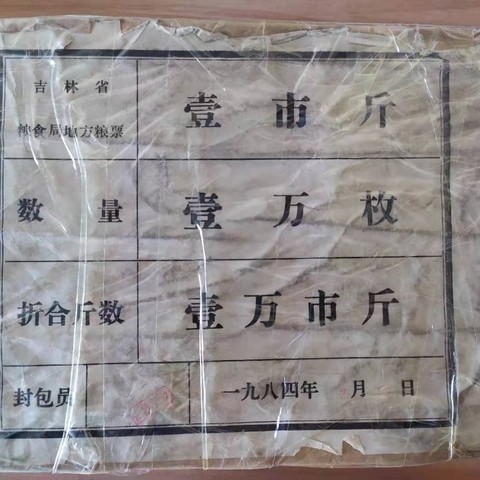 吉林省
粮食局地方粮票
壹市斤
数量
壹万枚
折合斤数
壹万市斤
封包员
一九八四年 月 日